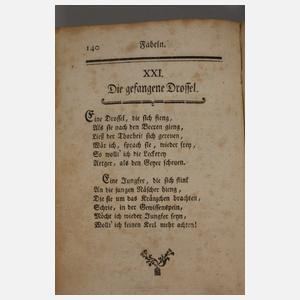 140
Fabeln.
XXI.
Die gefangene Drossel.
Eine Drossel, die sich fieng,
Als sie nach den Beeren gieng,
Ließ der Thorheit sich gereuen,
Wär ich, sprach sie, wieder frey,
So wollt ich die Leckerey
Aerger, als den Geyer scheuen.
Eine Jungfer, die sich flink
An die jungen Näscher hieng,
Die sie um das Kränzchen brachten,
Schrie, in der Gewissenspein,
Möcht ich wieder Jungfer seyn,
Wollt ich keinen Kerl mehr achten!